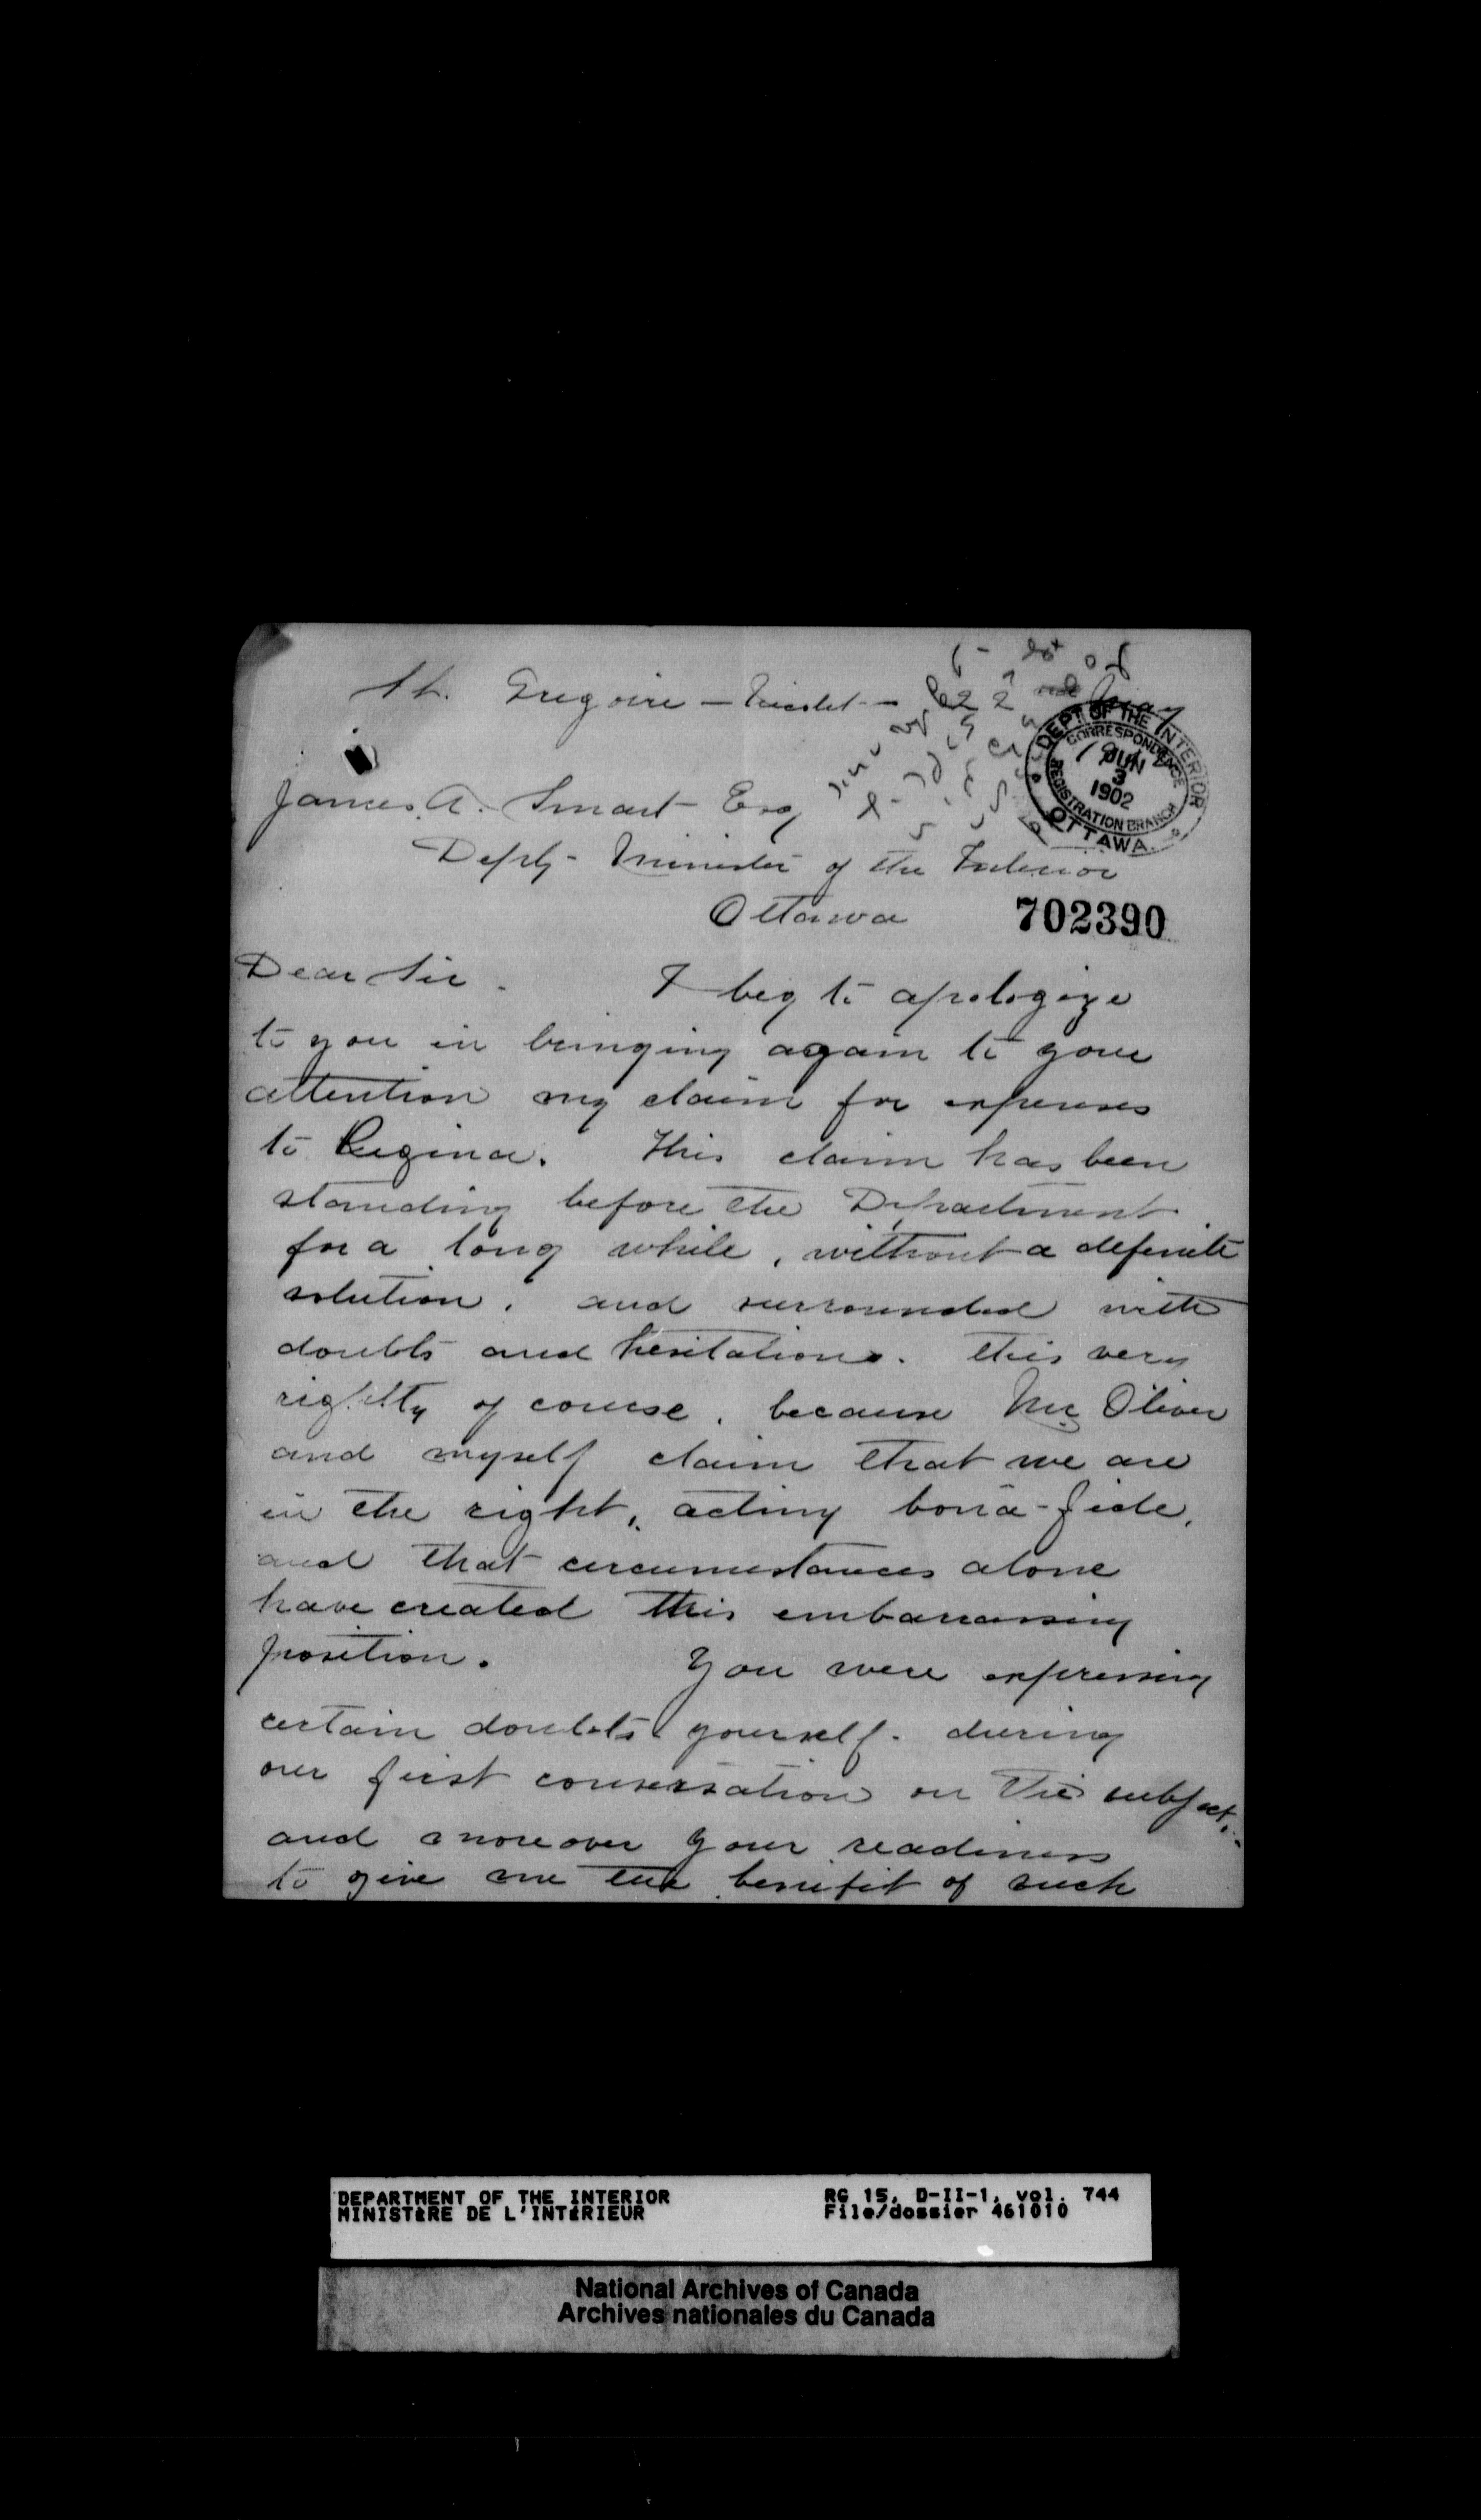 St. Gregoire — Nicolet — 22nd May
DEPT OF THE INTERIOR
CORRESPONDENCE
JUN
3
1902
REGISTRATION BRANCH
OTTAWA
James A. Smart Esq
Depty - Minister of the Interior
Ottawa
702390
Dear Sir. I beg to apologize
to you in bringing again to your
attention my claim for expenses
to Regina. This claim has been
standing before the Department
for a long while, without a definite
solution, and surrounded with
doubts and hesitations. This very
rightly of course, because Mr Oliver
and myself claim that we are
in the right, acting bona-fide,
and that circumstances alone
have created this embarrassing
position. You were expressing
certain doubts yourself. during
our first conversation on the subject,
and moreover your readiness
to give me the benifit of such
DEPARTMENT OF THE INTERIOR RG 15, D-II-1, vol. 744
MINISTÈRE DE L'INTÉRIEUR File/dossier 461010
National Archives of Canada
Archives nationales du Canada